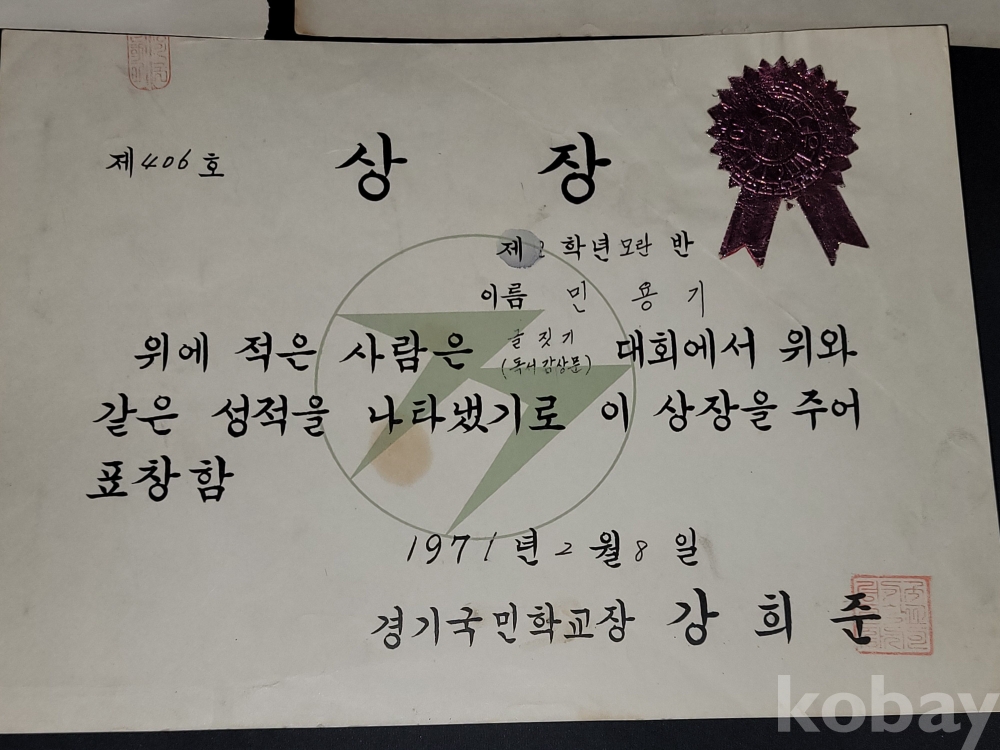 제406호 상 장
제2학년 모란 반
이름 민 용 기
위에 적은 사람은 글짓기 (독서감상문) 대회에서 위와
같은 성적을 나타냈기로 이 상장을 주어
표창함
1971년 2월 8일
경기국민학교장 강 희 준
kobay